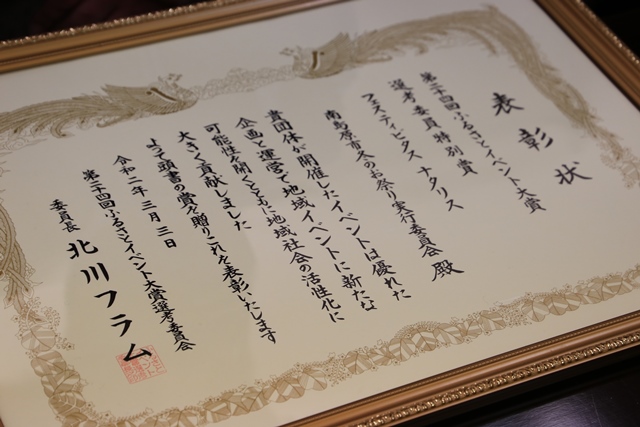 表彰状
第二十四回ふるさとイベント大賞
選考委員特別賞
フェスティビタス ナタリス
南島原市冬のお祭り実行委員会 殿
貴団体が開催したイベントは優れた
企画と運営で地域イベントに新たな
可能性を開くとともに地域社会の活性化に
大きく貢献しました
よって頭書の賞を贈りこれを表彰いたします
令和二年三月三日
第二十四回ふるさとイベント大賞選考委員会
委員長 北川フラム